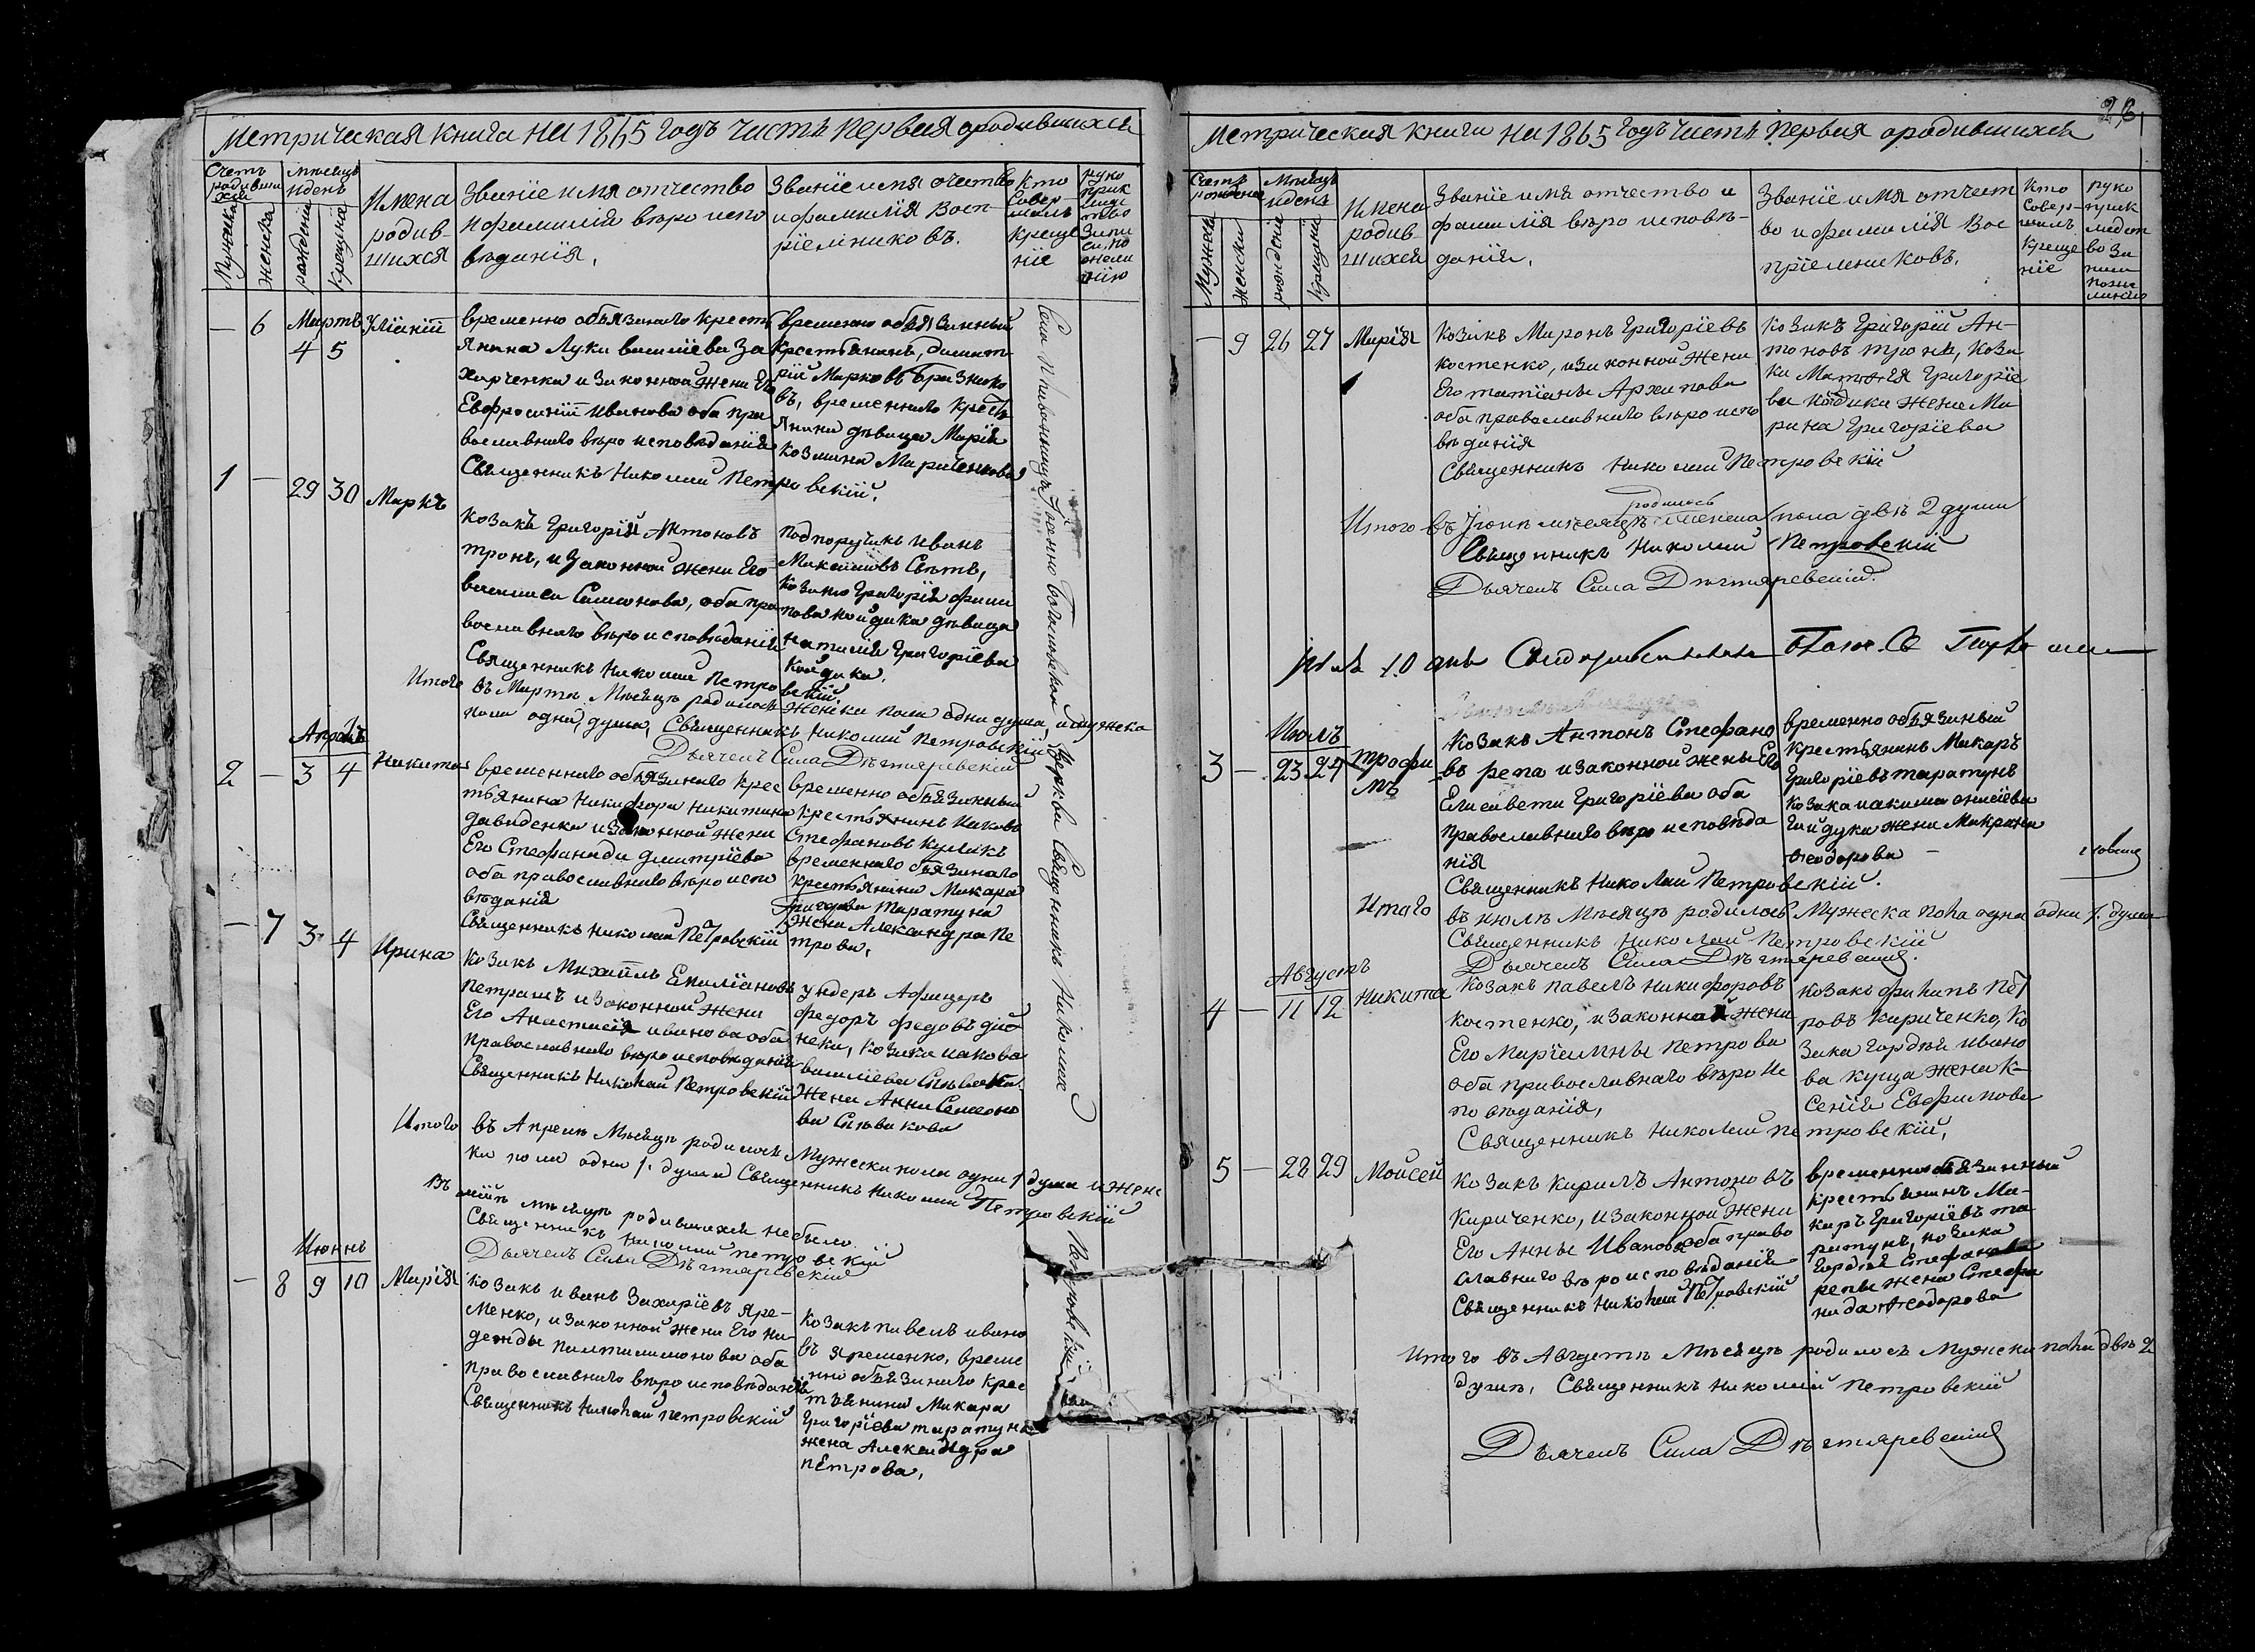 Метрическая книга на 1865 годъ часть первая ородившихся
Счетъ родивши хся
Мужеска
женска
мѣсяцъ и день
рожденія
крещенія
Имена
родив-
шихся
Званіе имя отчество
и фамилія вѣро испо
вѣданія.
Званіе имя отчество
и фамилія Восп-
ріемниковъ.
Кто
Совер-
шалъ
креще
ніе
— 6
Мартъ
4 5
Уліаніи
временно обязаного крест
янина Луки василіева За
харченка и законной жены Его
Евфросиніи Иванова оба пра
вославнаго вѣро исповѣданія
Священникъ Николай Петровскій.
временно обязанный
Крестьянинъ, димит
рій Марковъ
въ, временнаго Крест
янина дѣвица Марія
Козмина Мариченкова
1 —
29 30
Маркъ
Козакъ Григорій Антоновъ
тронь, и законной жены Его
василиса Симонова, оба пра
вославнаго вѣро исповѣданія
Священникъ Николай Петровскій.
Подпоручикъ Иванъ
Козака Григорія фили
пова койдика дѣвица
наталія Григоріева
Койдика.
Итого въ Мартѣ Мѣсяцѣ родилось женска пола одна душа и мужеска
пола одна, душа, Священникъ Николай Петровскій
Дьячекъ Сила Дѣгтяревскій
Апрѣль
2 — 3 4
Никита
временнаго обязанаго Крес
тьянина Никифора Никитина
давиденка и законной жены
Его Стефанида дмитріева
оба православнаго вѣро испо
вѣданія
Священникъ Николай Петровскій
временно обязанный
Крестьянинъ Иаковъ
Стефановъ Куликъ
временнаго обязанаго
Крестьянина Макара
Григоріева таратуна
жена Александра Пе
трова,
— 7 3 4
Ирина
Козакъ Михаилъ Емиліановъ
Петрашъ и законной жены
Его Анастасія иванова оба
православнаго вѣро исповѣданія
Священникъ Николай Петровскій
ундеръ Афицеръ
федоръ федовъ дло
неки, козака иакова
василіева
жена Анна Семеоно
ва Сиваkова
Итого въ Апрелѣ Мѣсяцѣ родилось Мужеска пола одна 1 душа и женс
ка пола одна 1. душа Священникъ Николай Петровскій
въ маіѣ мѣсяцѣ родившихся небыло
Священникъ Николай петровскій
Дьячекъ Сила Дѣгтяревскій
Июнь
— 8 9 10
Марія
Козакъ иванъ Захаріевъ Яре-
менко, и законной жены Его на-
дежды пантилимонова оба
православнаго вѣро исповѣданія
Священникъ Николай петровскій
Козакъ павелъ ивано
въ Яременко, време
нно обязанаго Крес
тьянина Макара
Григоріева таратуна
жена Александра
пЕтрова,
Церкви Священникъ Николай Петровскій
Метрическая книга на 1865 годъ часть первая ородившихся
Мужеска
женска
Мѣсяцъ и день
рожденія
крещенія
Имена
родив-
шихся
Званіе имя отчество и
фамилія вѣро исповѣ-
данія.
Званіе имя отчест
во и фамилія Вос
пріемниковъ.
Кто
Совер-
шилъ
Креще
ніе
— 9 26 27
Марія
Козакъ Миронъ Григоріевъ
костенко, и законной жены
Его татіаны Архипова
оба православнаго вѣро испо
вѣданія
Священникъ Николай Петровскій
Козакъ Григорій Ан-
тоновъ тронь, Коза
ка Матѳея Григоріе
ва койдика жена Ма
рина Григоріева
Итого въ Іюнѣ мѣсяцѣ родилось женска пола двѣ 2 души
Священникъ Николай Петровскій
Дьячекъ Сила Дѣгтяревскій.
Июль
3 — 23 24
Трофи
мъ
Козакъ Антонъ Стефано
въ репа и законной жены Его
Елисавети Григоріева оба
православнаго вѣро исповѣда
нія
Священникъ Николай Петровскій.
временно обязаный
Крестьянинъ Макаръ
Григоріевъ таратунъ
Козака иакима
Гайдука жена Макрана
Ѳеодорова
Итого въ июлѣ Мѣсяцѣ родилось Мужеска пола одна одна 1. душа
Священникъ Николай Петровскій
Дьячекъ Сила Дѣгтяревскій.
Августъ
4 — 11 12
Никита
Козакъ павелъ никифоровъ
костенко, и законной жены
Его Марѳимны петрова
оба православнаго вѣро ис
повѣданія,
Священникъ Николай петровскій,
козакъ филипъ пет
ровъ кириченко, Ко
зака гордѣя ивано
ва куца жена К-
сенія Евфимова
5 — 28 29
Моисей
Козакъ кирилъ Антоновъ
Кириченко, и законной жены
Его Анны Иванова оба право
славнаго вѣро исповѣданія
Священникъ Николай Петровскій
временно обязанный
крестьянинъ Ма-
каръ Григоріевъ та
ратунъ, козака
Гордѣя Стефанова
репы жена Стефа
нида Ѳеодорова
Итого въ Августѣ Мѣсяцѣ родилось Мужеска пола двѣ 2
души, Священникъ Николай Петровскій
Дьячекъ Сила Дѣгтяревскій